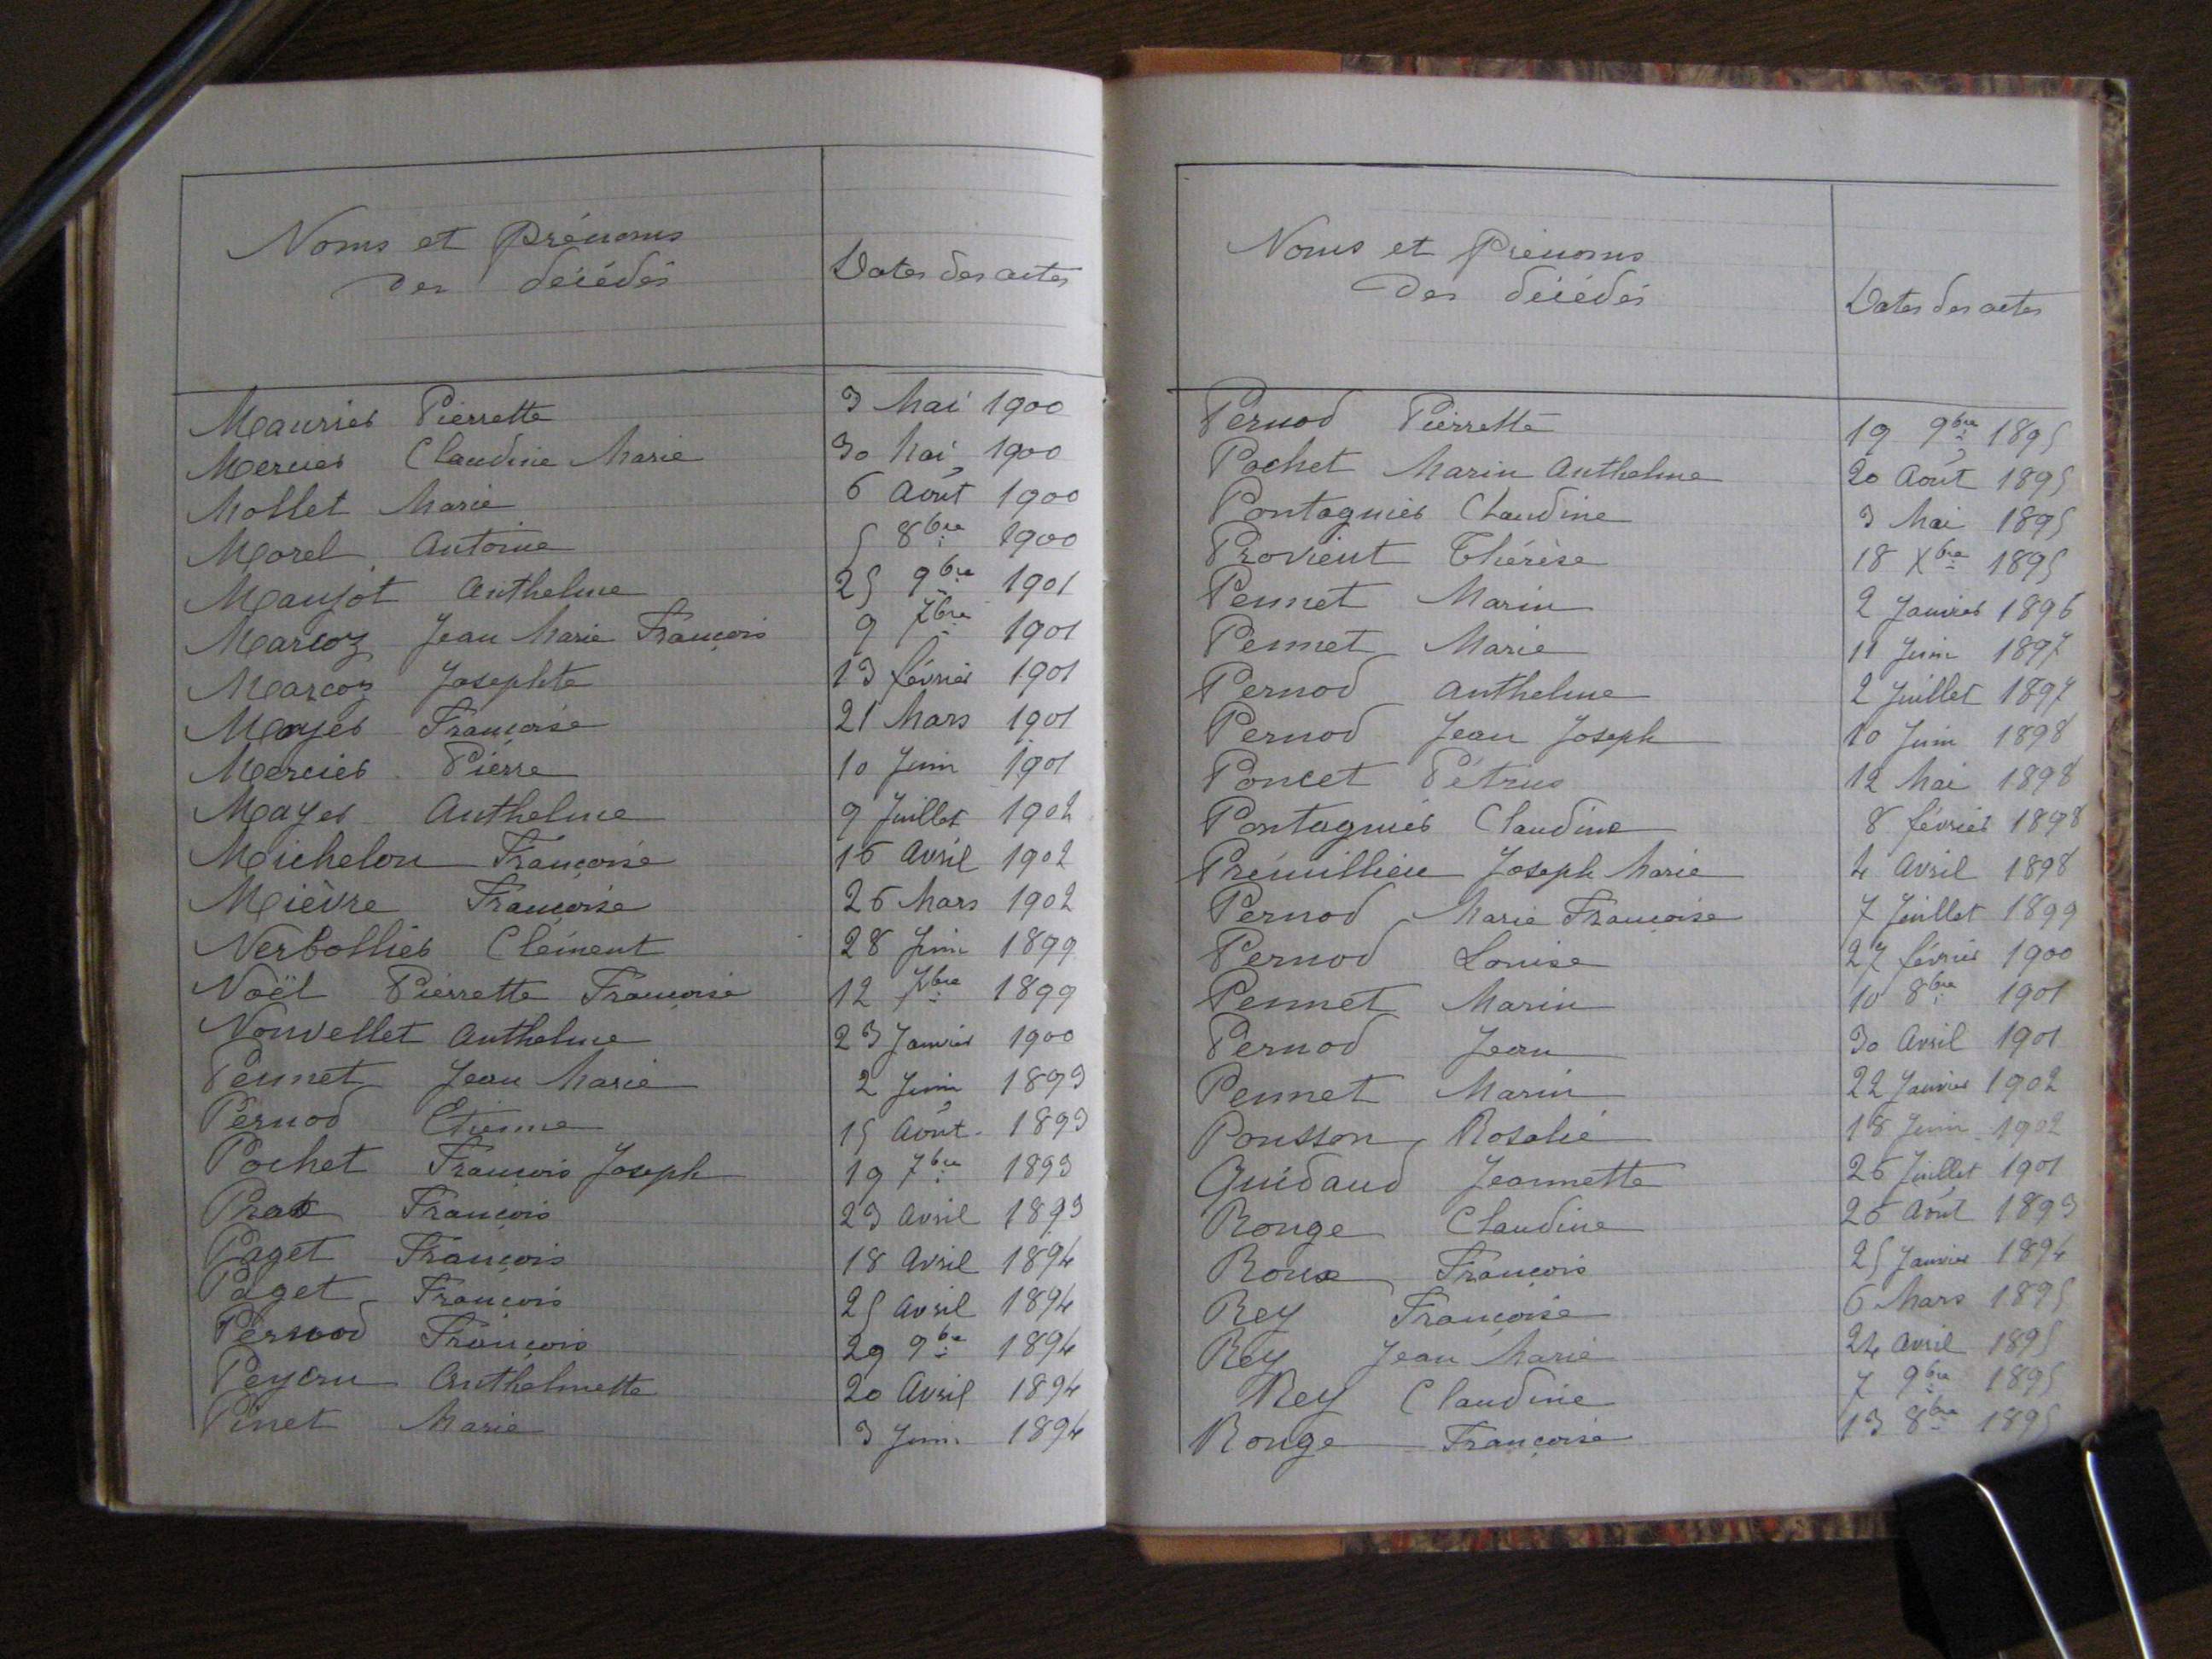 Noms et Prénoms
des décédés
Dates des actes
Maurier Pierrette 3 Mai 1900
Mercier Claudine Marie 30 Mai 1900
Mollet Marie 6 Août 1900
Morel Antoine 5 8bre 1900
Maujot Anthelme 25 9bre 1901
Marcoz Jean Marie François 9 7bre 1901
Marcoz Josephte 13 février 1901
Mayer Françoise 21 Mars 1901
Mercier Pierre 10 Juin 1901
Mayer Anthelme 9 Juillet 1902
Michelon Françoise 16 Avril 1902
Mièvre Françoise 26 Mars 1902
Nerbollier Clément 28 Juin 1899
Noël Pierrette Françoise 12 7bre 1899
Nouvellet Anthelme 23 Janvier 1900
Pennet Jean Marie 2 Juin 1893
Pernod Etienne 15 Août 1893
Pochet François Joseph 19 7bre 1893
Prat François 23 Avril 1893
Paget François 18 Avril 1894
Paget François 25 Avril 1894
Pernod François 29 9bre 1894
Peycru Anthelmette 20 Avril 1894
Pinet Marie 3 Juin 1894
Noms et Prénoms
des décédés
Dates des actes
Pernod Pierrette 19 9bre 1895
Pochet Marin Anthelme 20 Août 1895
Pontagnier Claudine 3 Mai 1895
Provient Thérèse 18 Xbre 1895
Pennet Marin 2 Janvier 1896
Pennet Marie 11 Juin 1897
Pernod Anthelme 2 Juillet 1897
Pernod Jean Joseph 10 Juin 1898
Poncet Pétrus 12 Mai 1898
Pontagnier Claudine 8 février 1898
Prémillieu Joseph Marie 4 Avril 1898
Pernod Marie Françoise 7 Juillet 1899
Pernod Louise 27 février 1900
Pennet Marin 10 8bre 1901
Pernod Jean 30 Avril 1901
Pennet Marin 22 Janvier 1902
Pousson Rosalie 18 Juin 1902
Guidaud Jeannette 26 Juillet 1901
Rouge Claudine 26 Août 1893
Roux François 25 Janvier 1894
Rey Françoise 6 Mars 1895
Rey Jean Marie 24 Avril 1895
Rey Claudine 7 9bre 1895
Rouge Françoise 13 8bre 1895